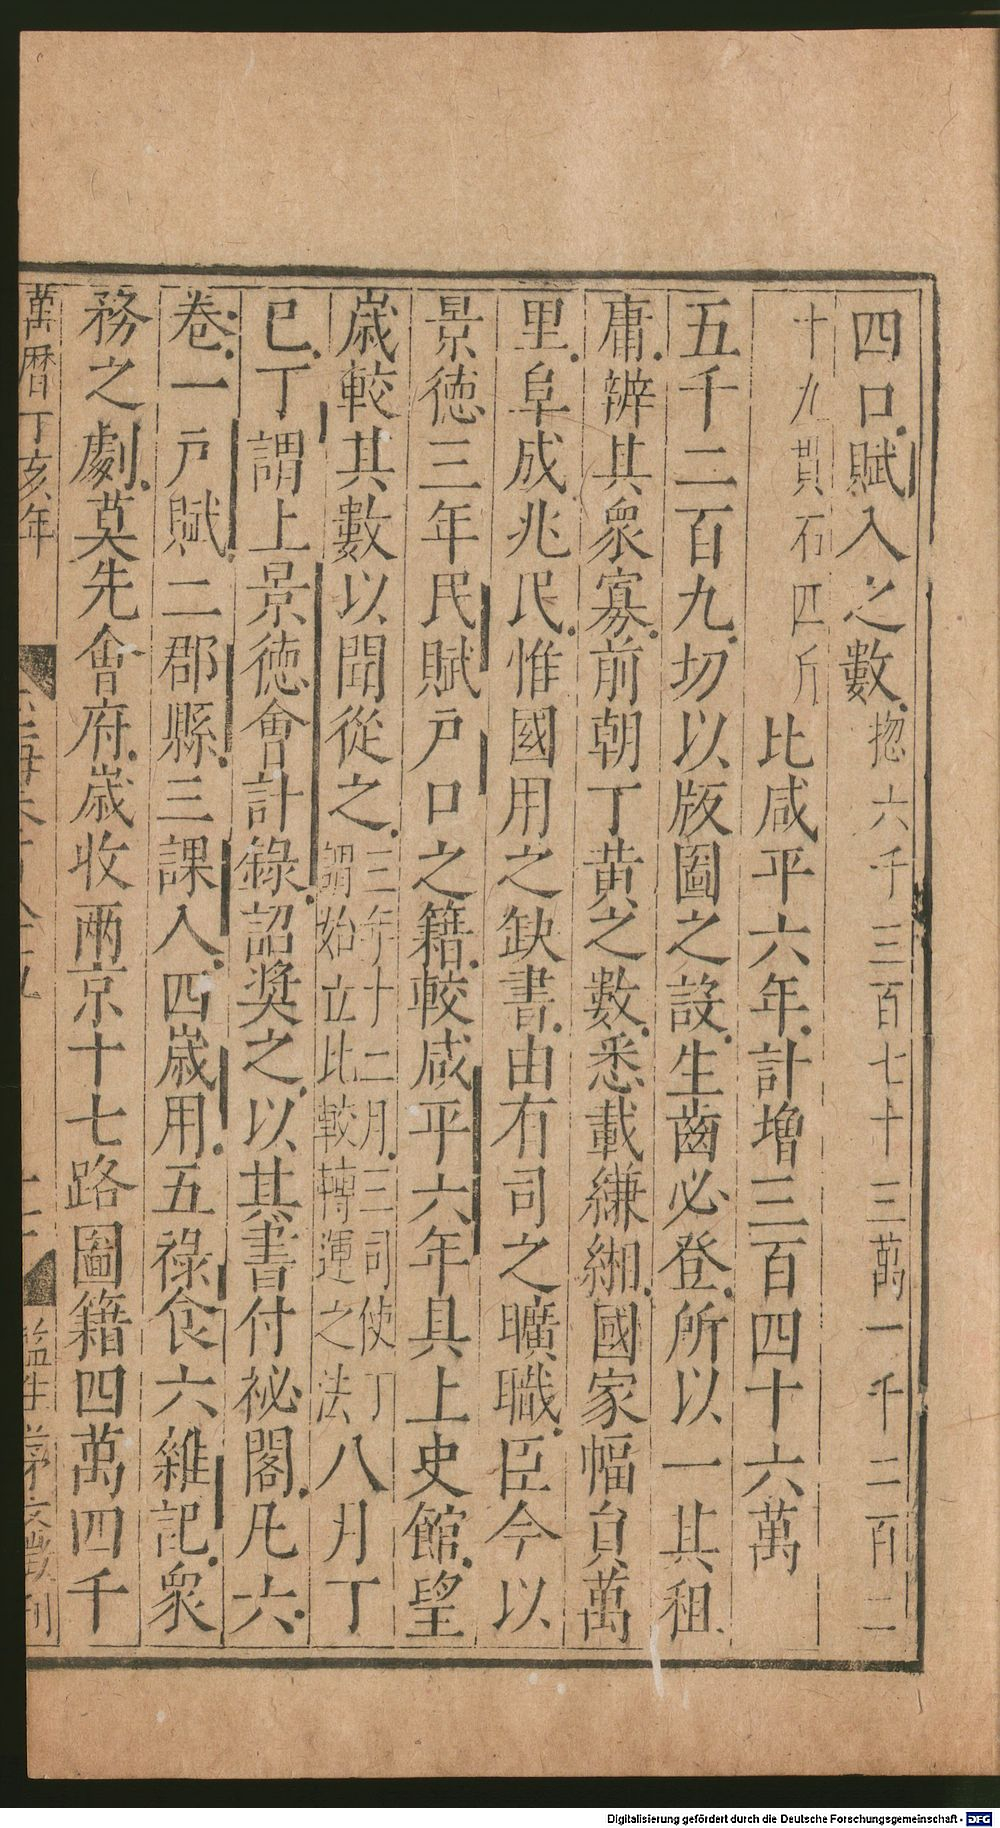 四口賦入之數揔六千三百七十三萬一千二百二
十九貫石匹斤比咸平六年計增三百四十六萬
五千二百九切以版圖之設生齒必登所以一其租
庸辨其衆寡前朝丁黄之數悉載縑緗國家幅員萬
里阜成兆民惟國用之缺書由有司之曠職臣今以
景德三年民賦戶口之籍較咸平六年具上史館望
歲較其數以聞從之三年十二月三司使丁
謂始立比較轉運之法八月丁
巳丁謂上景德會計錄詔奬之以其書付祕閣凡六
卷一戶賦二郡縣三課入四歲用五祿食六雜記衆
務之劇莫先會府歲收兩京十七路圖籍四萬四千
萬曆丁亥年
監生
刊
Digitalisierung gefördert durch die Deutsche Forschungsgemeinschaft - DFG